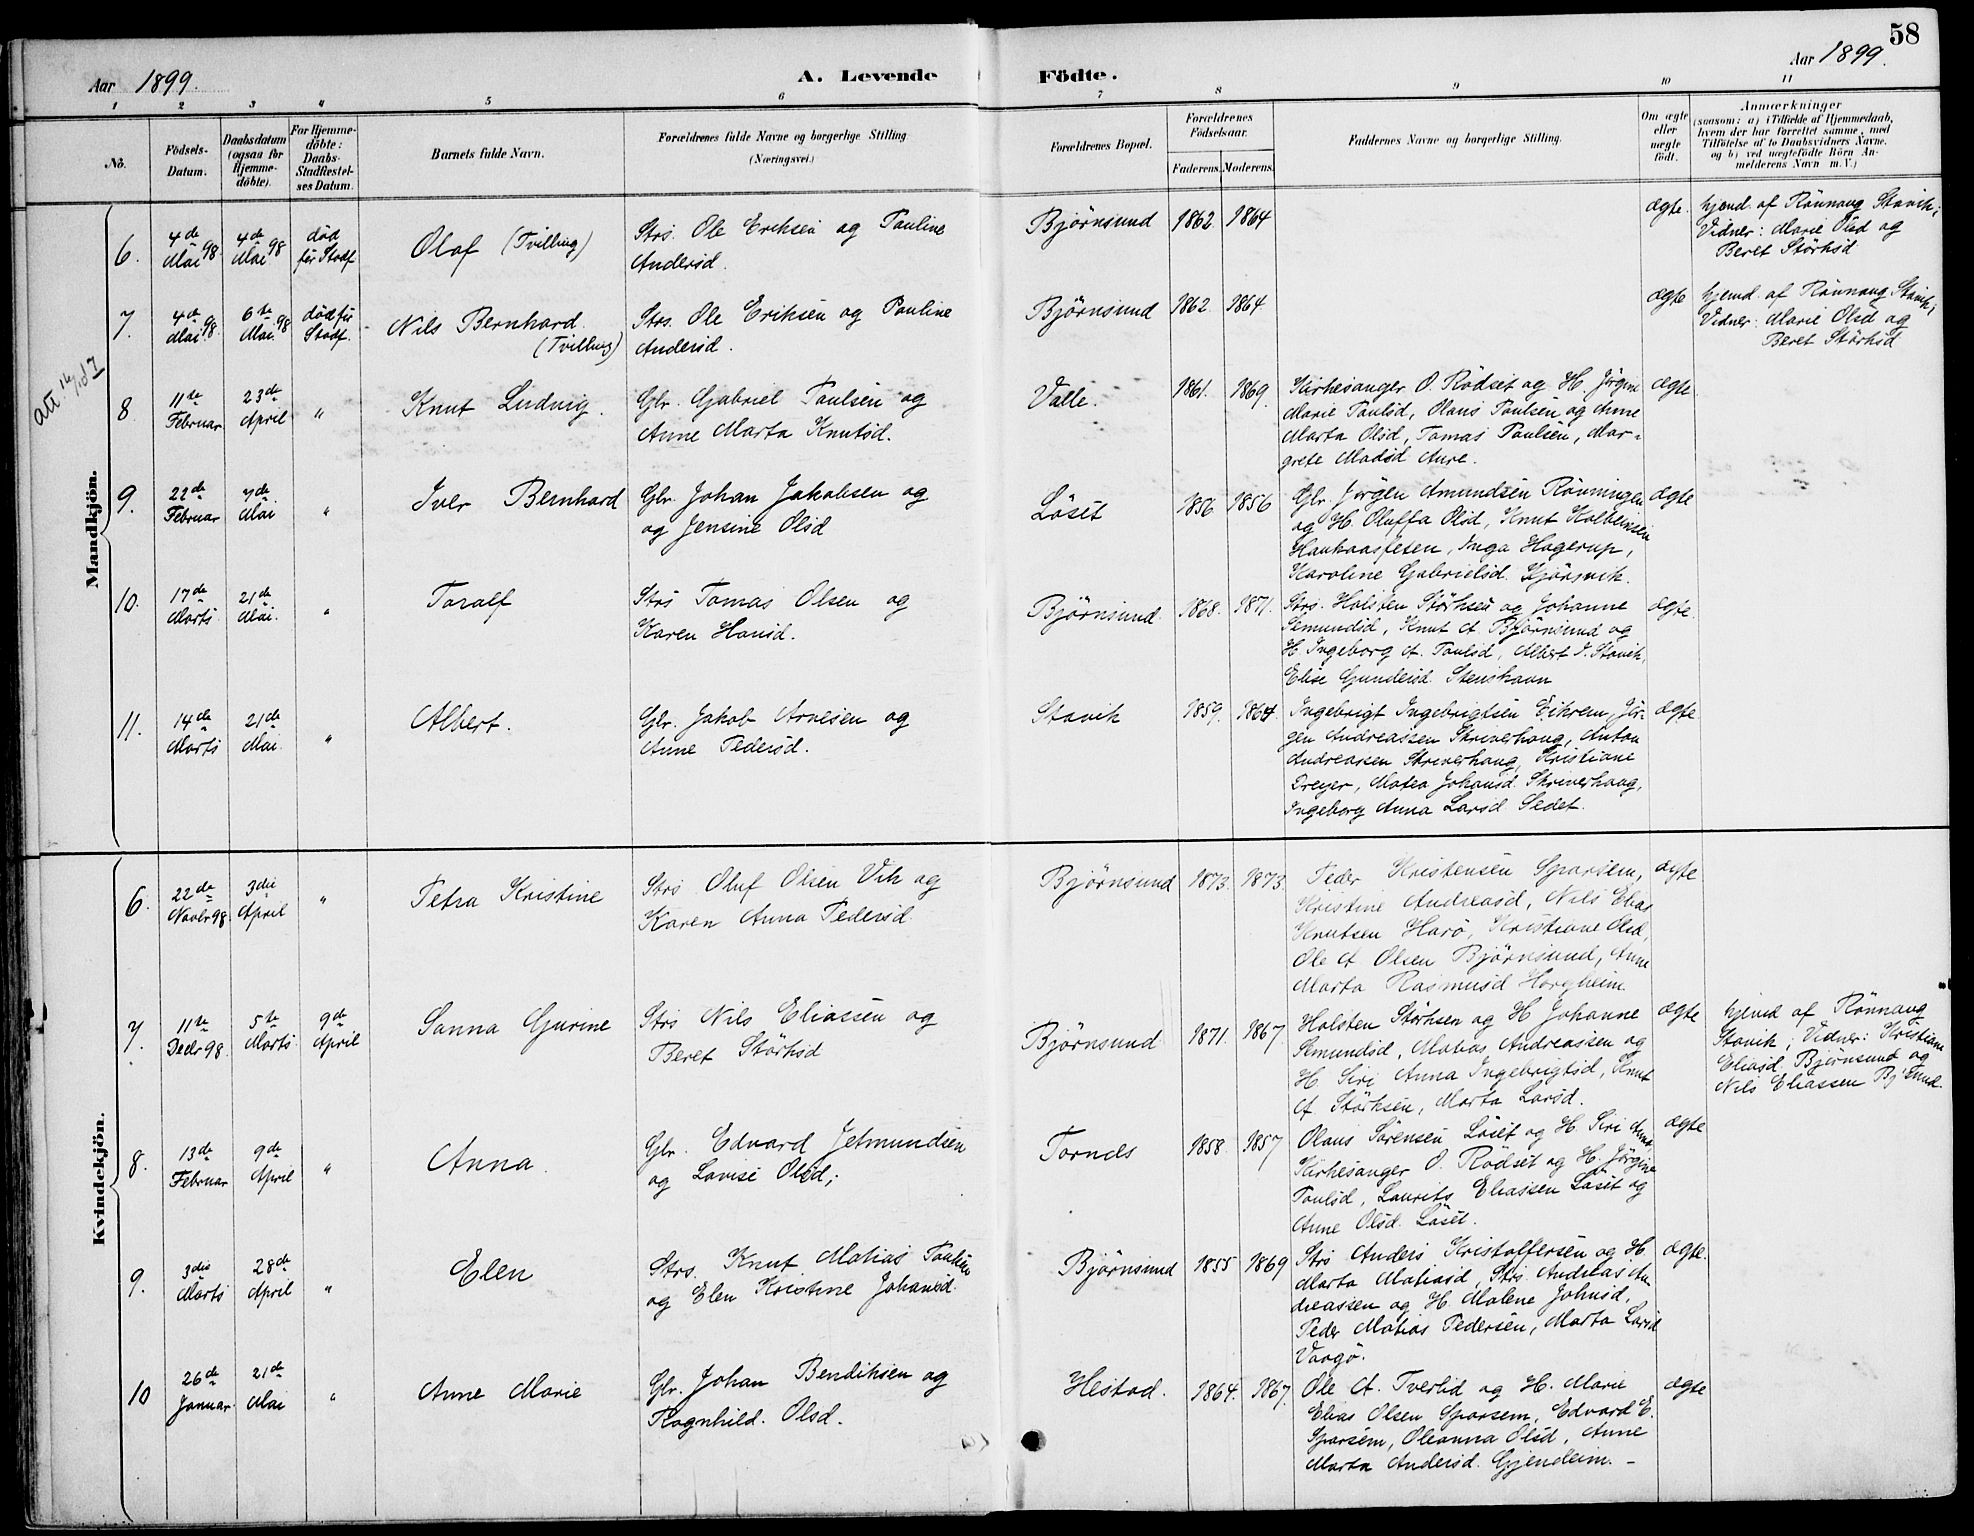 58
Aar 1899.
A. Levende
Födte.
Aar 1899.
1 2 3 4 5 6 7 8 9 10 11
No.
Födsels-Datum.
Daabsdatum (ogsaa for Hjemme-döbte).
For Hjemme-döbte: Daabs-Stadfæstel-ses Datum.
Barnets fulde Navn.
Forældrenes fulde Navne og borgerlige Stilling
(Næringsvei.)
Forældrenes Bopæl.
Forældrenes Födselsaar.
Faderens. Moderens.
Faddernes Navne og borgerlige Stilling.
Om ægte eller uægte födt.
Anmærkninger
(saasom: a) i Tilfælde af Hjemmedaab,
hvem der har forrettet samme, med
Tilföielse af to Daabsvidners Navne.
og b) ved uægtefödte Börn An-
melderens Navn m.V.)
Mandkjön.
6. 4de Mai 98. 4de Mai 98 död før Stadf. Olaf (Tvilling) Strs. Ole Eriksen og Pauline
Andersd. Björnsund 1862. 1864 ægte. hjemd. af Rönnaug Stavik;
Vidner: Marie Olsd og
Beret Störksd
7. 4de Mai 98. 6te Mai 98 död før Stadf. Nils Bernhard
(Tvilling) Strs. Ole Eriksen og Pauline
Andersd. Björnsund 1862 1864. ægte hjemd. af Rönnaug Stavik;
Vidner: Marie Olsd og
Beret Störksd
8. 11te Februar 23de April " Knut Ludvig. Glr. Gabriel Paulsen og
Anne Marta Knutsd. Valle. 1861. 1869. Kirkesanger O. Rödset og H. Jörgine ægte
Marie Paulsd, Olaus Paulsen og Anne
Marta Olsd, Tomas Paulsen, Mar-
grete Madsd Aure.
9. 22de Februar 7de Mai " Iver Bernhard Glr. Johan Jakobsen og
og Jensine Olsd Löset 1856 1856 Glr. Jörgen Amundsen Rönningen ægte
og H. Oluffa Olsd, Knut Kolbeinsen
Haukaasfeten, Inga Hagerup,
Karoline Gabrielsd. Kjörsvik.
10. 17de Marts 21de Mai. " Toralf Strs Tomas Olsen og
Karen Hansd. Björnsund. 1868. 1871. Strs. Holsten Störksen og Johanne ægte.
Semundsd, Knut A. Björnsund og
H. Ingeborg A. Paulsd, Albert I. Stavik,
Elise Gundersd. Stenshavn
11. 14de Marts 21de Mai. " Albert. Glr. Jakob Arnesen og
Anne Pedersd. Stavik 1859. 1864. Ingebrigt Ingebrigtsen Eikrem, Jör- ægte
gen Andreassen Skriverhaug, Anton
Andreassen Skriverhaug, Kristiane
Dreyer, Matea Johansd. Skriverhaug,
Ingeborg Anna Larsd Sedet.
Kvindekjön.
6. 22de Novbr 98 3die April " Petra Kristine Strs Oluf Olsen Vik og
Karen Anna Pedersd. Björnsund 1873. 1873. Peder Kristensen Sporsem, ægte
Kristine Andreasd, Nils Elias
Knutsen Harö, Kristiane Olsd,
Ole A Olsen Björnsund, Anne
Marta Rasmusd Horgheim
7. 11te Decbr 98. 5te Marts. 9de April Sanna Gurine Strs Nils Eliassen og
Beret Störksd Björnsund 1871. 1867 Holsten Störksen og H Johanne ægte hjemd af Rönnaug
Semundsd, Matias Andreassen og Stavik; Vidner: Kristiane
H. Siri Anna Ingebrigtsd, Knut Eliasd. Björnsund og
A. Störksen, Marta Larsd. Nils Eliassen Bj'sund.
8. 13de Februar 9de April " Anna. Glr. Edvard Jetmundsen
og Lovise Olsd; Tornes 1858. 1857 Olaus Sörensen Löset og H. Siri Anne, ægte
Kirkesanger O. Rödset og H. Jörgine
Paulsd, Laurits Eliassen Löset og
Anne Olsd. Löset.
9. 3die Marts 28de April " Elen Strs. Knut Matias Paulsen
og Elen Kristine Johansd. Björnsund 1855 1869 Strs Anders Kristoffersen og H. ægte.
Marta Matiasd, Strs. Andreas An-
dreassen og H. Malene Johnsd,
Peder Matias Pedersen, Marta Larsd
Vaagö.
10 26de Januar. 21de Mai " Anne Marie Glr. Johan Bendiksen og
Ragnhild. Olsd. Hestad. 1864. 1867. Ole A. Tverlid og H. Marie ægte
Elias Olsen Sporsem, Edvard E.
Sporsem, Oleanna Olsd, Anne
Marta Andersd. Gjendeim. –